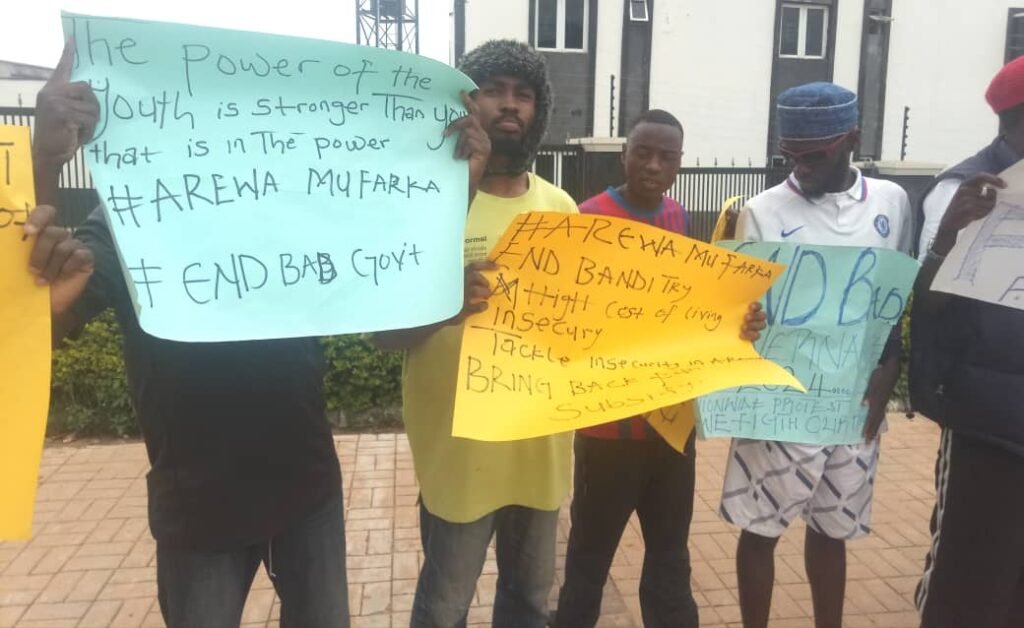 The Power of the
Youth is stronger Than you
that is in The power
#AREWA MUFARKA
# END BAB Govt
ormal
#AREWA MUFARKA
END BANDITRY
High Cost of Living
Insecury
Tackle insecurity in
BRING BACK
Subsi
END BAD
VERNA
2024....
IONWIDE PROTEST